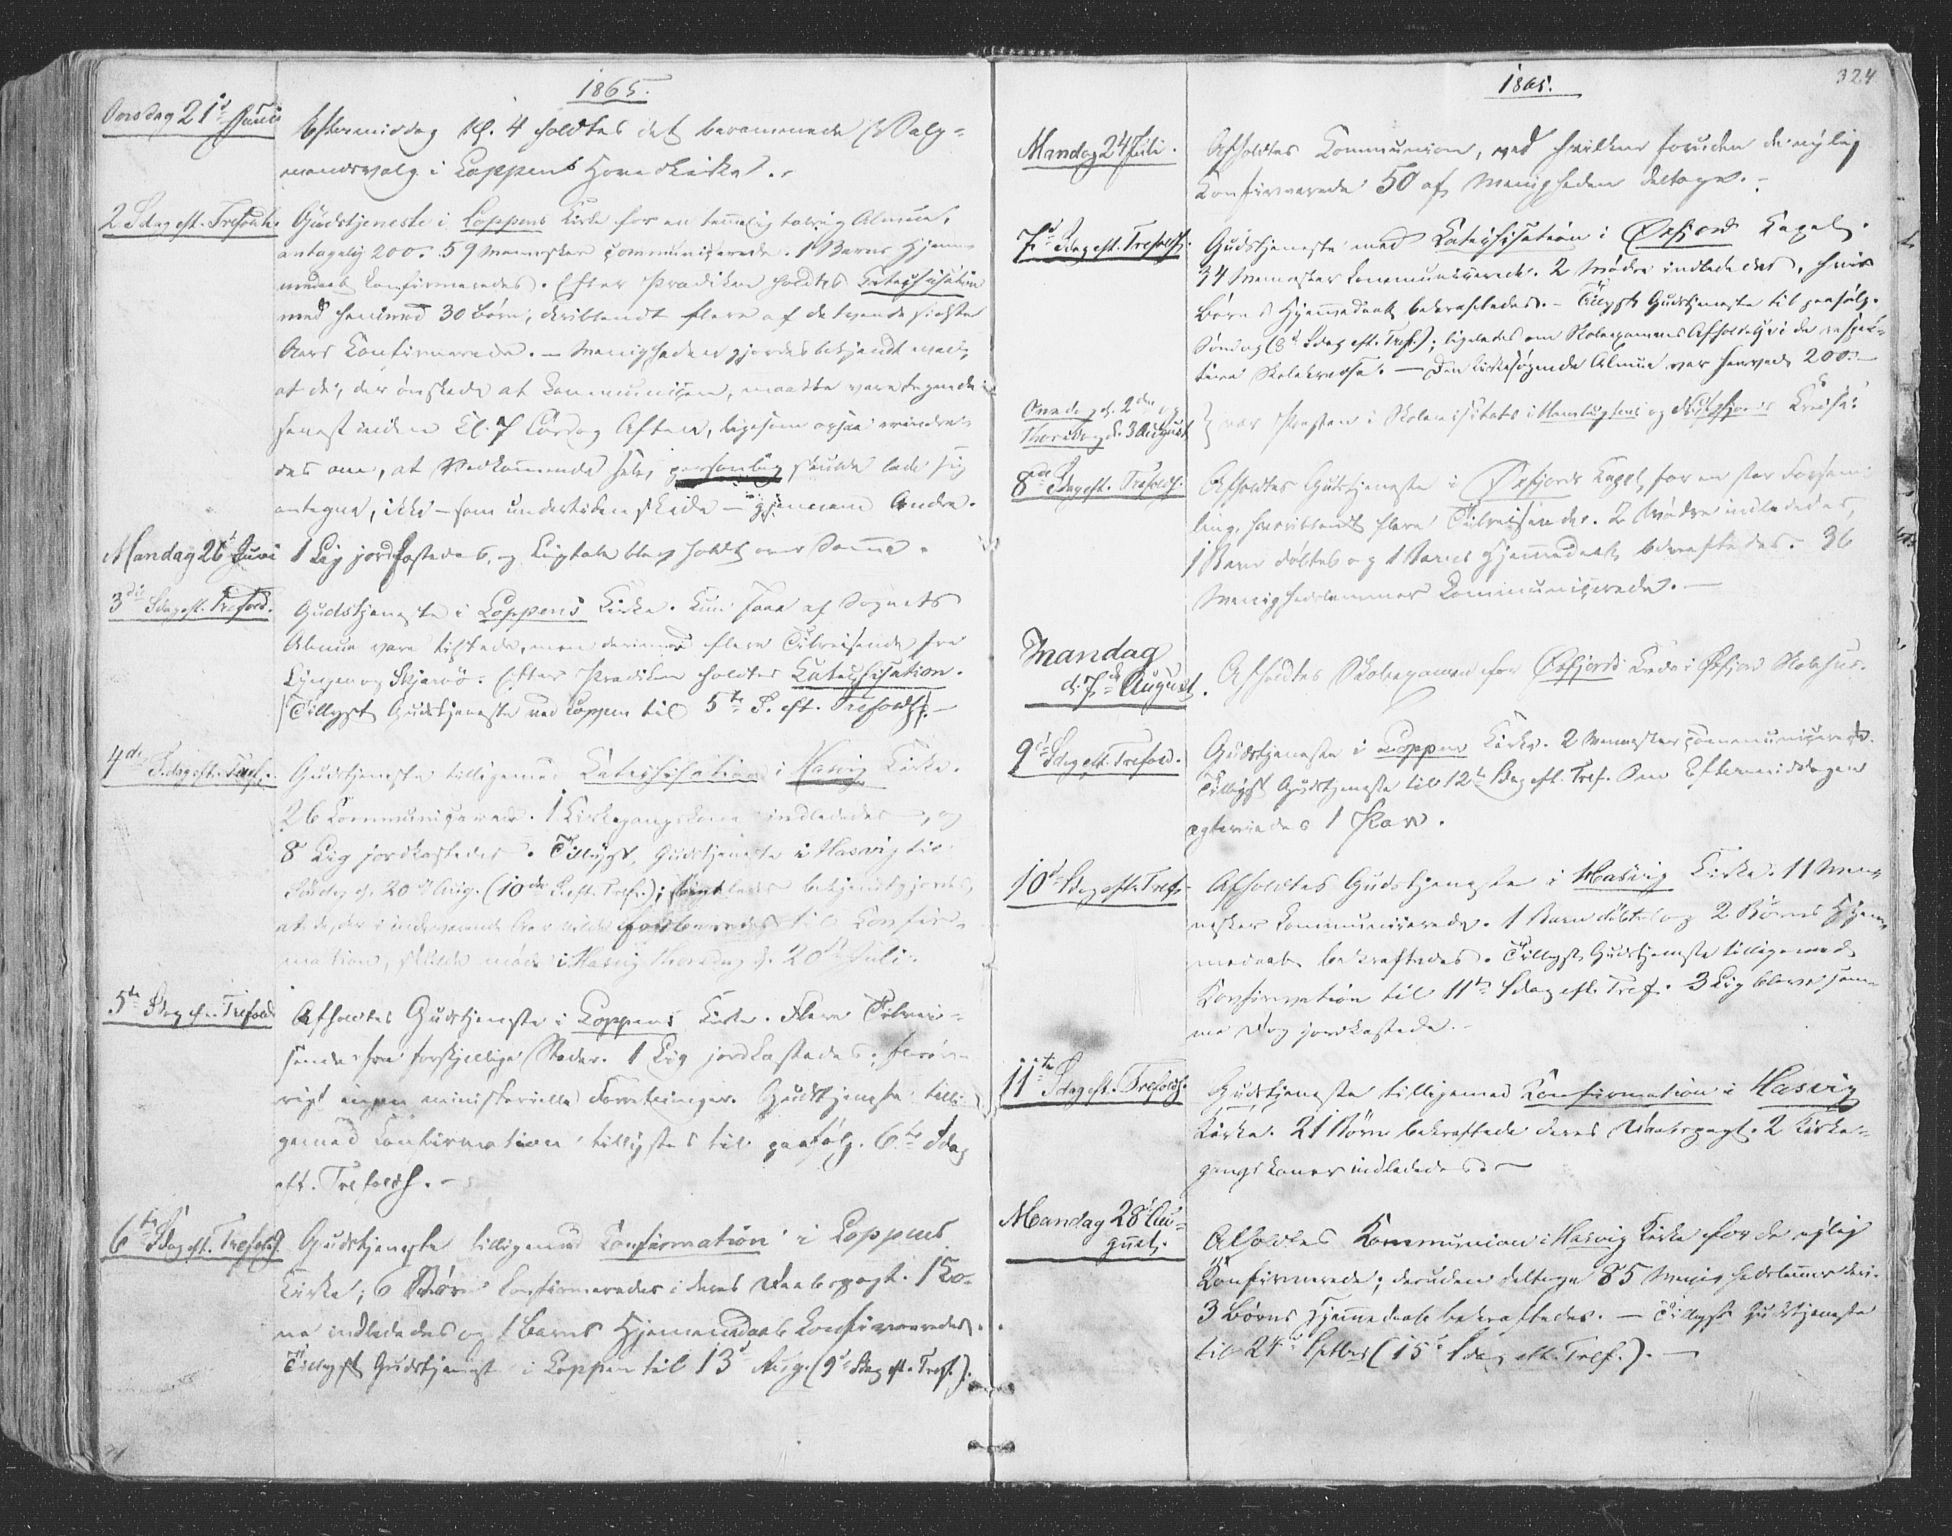 1865.
Onsdag 21de Juni
Eftermiddag Kl. 4 holdtes det berammede Valg-
mandsvalg i Loppens Hovedkirke.
2 Sdag eft. Trefoldh.
Gudstjeneste i Loppens Kirke for en temmelig talrig Almue,
antagelig 200. 59 Mennesker communicerede. 1 Barns Hjemme
daab konfirmeredes. Efter Prædiken holdtes Katechisation
med henimod 30 Børn, deriblandt flere af de tvende sidste
Aars Konfirmerede. — Menigheden gjordes bekjendt med,
at de, der ønskede at kommunicere, maatte være tegnede
senest inden Kl. 7 Lørdag Aften, ligesom ogsaa erindre-
des om, at Vedkommende selv personlig skulde lade sig
antegne, ikke – som undertiden skede – gjennem Andre.
Mandag 26de Juni
1 Lig jordfæstedes, og Ligtale blev holdt over Samme.
3die Sdag eft. Trefold.
Gudstjeneste i Loppens Kirke. Kun faae af Sognets
Almue vare tilstede, men derimod flere Tilreisende fra
Lyngen og Skjærvø. Efter Prædiken holdtes Katechisation.
(Tillyst Gudstjeneste ved Loppen til 5te S. eft. Trefoldh.) —
4de Sdag eft. Tref.
Gudstjeneste tilligemed Katechisation i Hasvig Kirke.
26 Kommunicerede. 1 Kirkegangskone indlededes, og
8 Lig jordkastedes. Tillyst Gudstjeneste i Hasvig til
Søndag d. 20de Aug. (10de S. eft. Tref.); bekjendtgjordes,
at de, der i indeværende Aar vilde forberedes til Konfir-
mation, skulde møde i Hasvig Thorsdag d. 20de Juli.
5te Sdag eft. Trefold.
Afholdtes Gudstjeneste i Loppens Kirke. Flere Tilrei-
sende fra forskjellige Steder. 1 Lig jordkastedes; forøv-
rigt ingen ministerielle Forretninger. Gudstjeneste tilli-
gemed Konfirmation tillystes til paafølg. 6te Sdag
eft. Trefoldh. —
6te Sdag eft. Trefoldh.
Gudstjeneste tilligemed Konfirmation i Loppens
Kirke; 6 Børn konfirmeredes i deres Daabspagt. 1 Ko-
ne indlededes og 1 Barns Hjemmedaab konfirmeredes.
Tillyst Gudstjeneste i Loppen til 13de Aug. (9de Sdag eft. Tref.).
1865.
324
Mandag 24 Juli.
Afholdtes Kommunion, ved hvilken foruden de nylig
Konfirmerede 50 af Menigheden deltoge. –
7de Sdag eft. Trefoldh.
Gudstjeneste med Katechisation i Øxfjord Kapel.
34 Mennesker kommunicerede. 2 Mødre indlededes, hvis
Børns Hjemmedaab bekræftedes. – Tillyst Gudstjeneste til paafølg.
Søndag (8de Sdag eft. Tref.); ligeledes om Skoleexamens Afholdelse i de respek-
tive Skolekredse. — Den kirkesøgende Almue var henved 200. —
Onsdag d. 2den og
Thorsdag d. 3 August
} var Præsten i Skolevisitats i og Kredse.
8de Sdag eft. Trefoldh.
Afholdtes Gudstjeneste i Øxfjords Kapel for en stor Forsam-
ling, hvoriblandt flere Tilreisende. 2 Mødre indlededes,
1 Barn døbtes og 1 Barns Hjemmedaab bekræftedes. 36
Menighedslemmer kommunicerede. —
Mandag
d. 7de August.
Afholdtes Skoleexamen for Øxfjords Kreds i Øxfjord Skolehus.
9de Sdag eft. Trefold.
Gudstjeneste i Loppens Kirke. 2 Mennesker communicerede.
Tillyst Gudstjeneste til 12te Sdag eft. Tref. Om Eftermiddagen
ægteviedes 1 Par.
10de Sdag eft. Tref.
Afholdtes Gudstjeneste i Hasvig Kirke. 11 Men-
nesker kommunicerede. 1 Barn døbtes og 2 Børns Hjem-
medaab bekræftedes. Tillyst Gudstjeneste tilligemed
Konfirmation til 11te Sdag eft. Tref. 3 Lig bleve sam-
me Dag jordkastede. –
11te Sdag eft. Trefoldh.
Gudstjeneste tilligemed Konfirmation i Hasvig
Kirke. 21 Børn bekræftede deres Daabspagt. 2 Kirke-
gangskoner indlededes. —
Mandag 28de Au-
gust.
Afholdtes Kommunion i Hasvig Kirke for de nylig
Konfirmerede; desuden deltoge 85 Menighedslemmer deri.
3 Børns Hjemmedaab bekræftedes. — Tillyst Gudstjeneste
til 24de Septbr (15de Sdag eft. Tref.). —